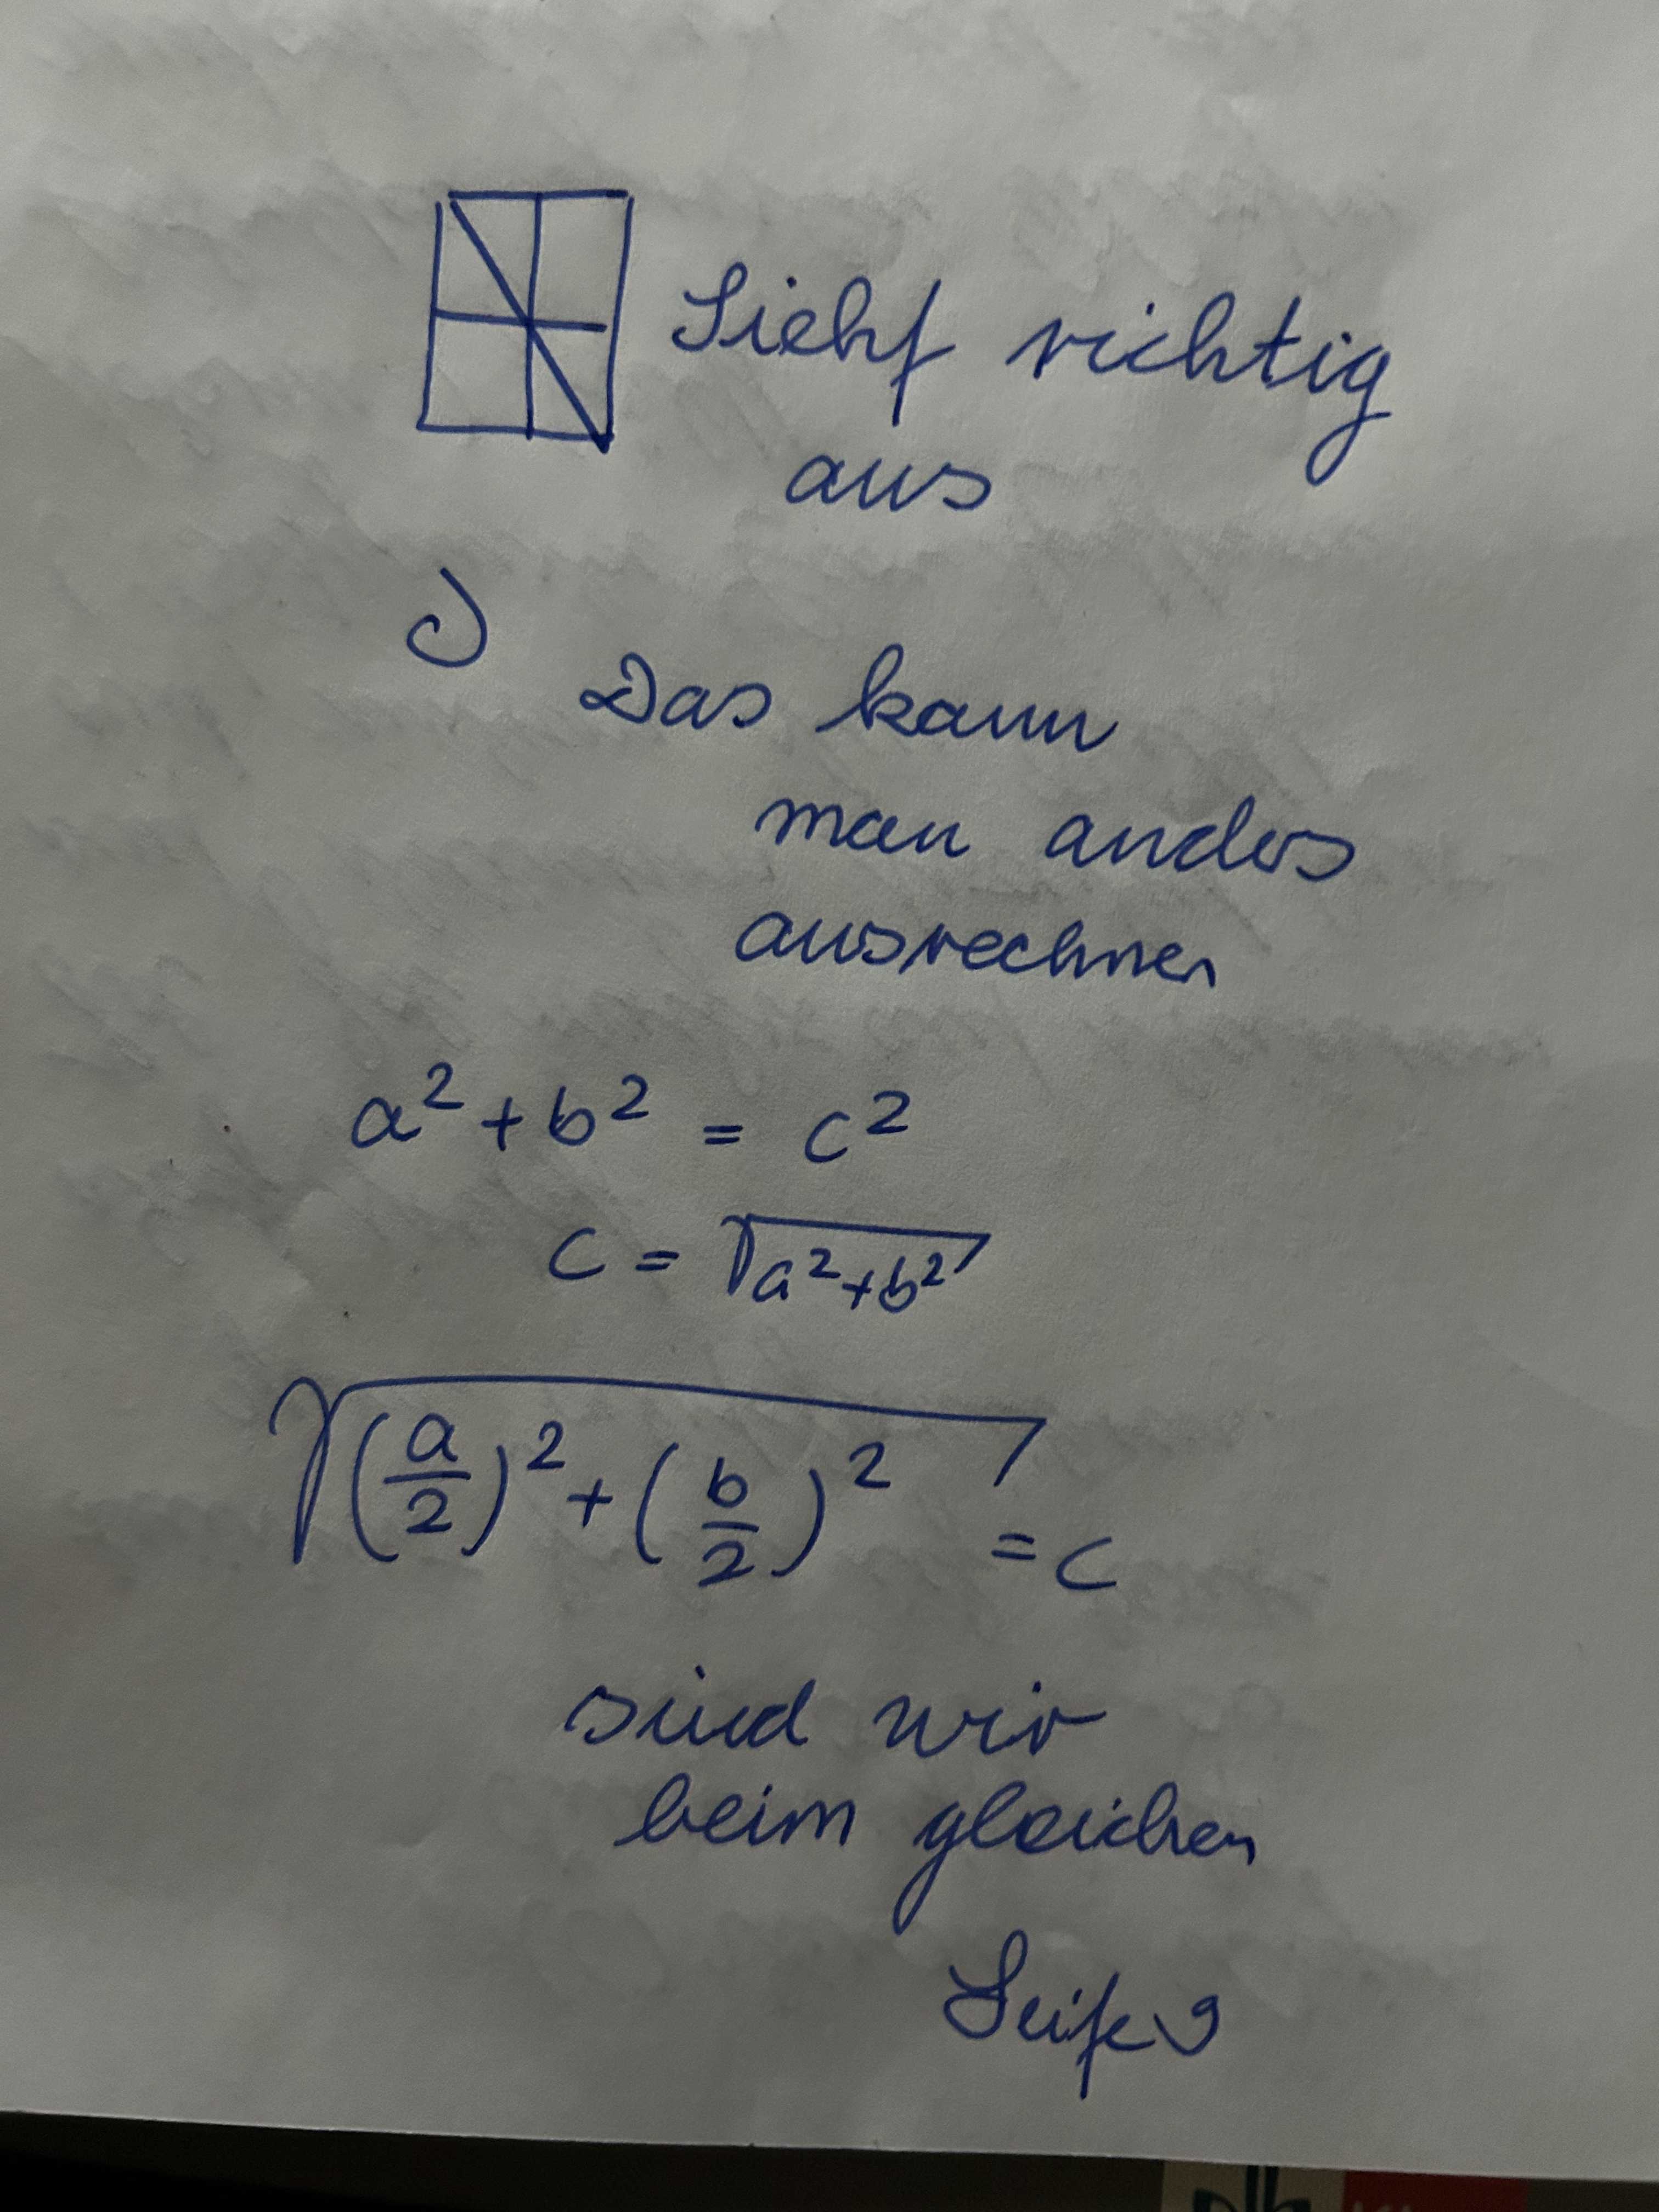 Sieht richtig
aus
Das kann
man anders
ausrechnen
a² + b² = c²
c = √(a² + b²)
√((a/2)² + (b/2)²) = c
sind wir
beim gleichen
Seite 9